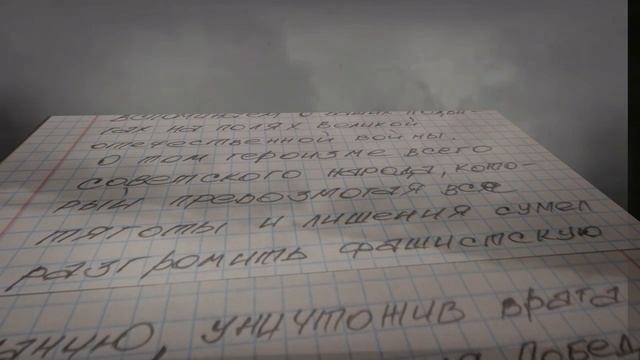 вспоминаем о
тах на полях великой
отечественной войны.
О том героизме всего
советского народа, кото-
рый превозмогая все
тяготы и лишения сумел
разгромить фашистскую
уничтожив врага